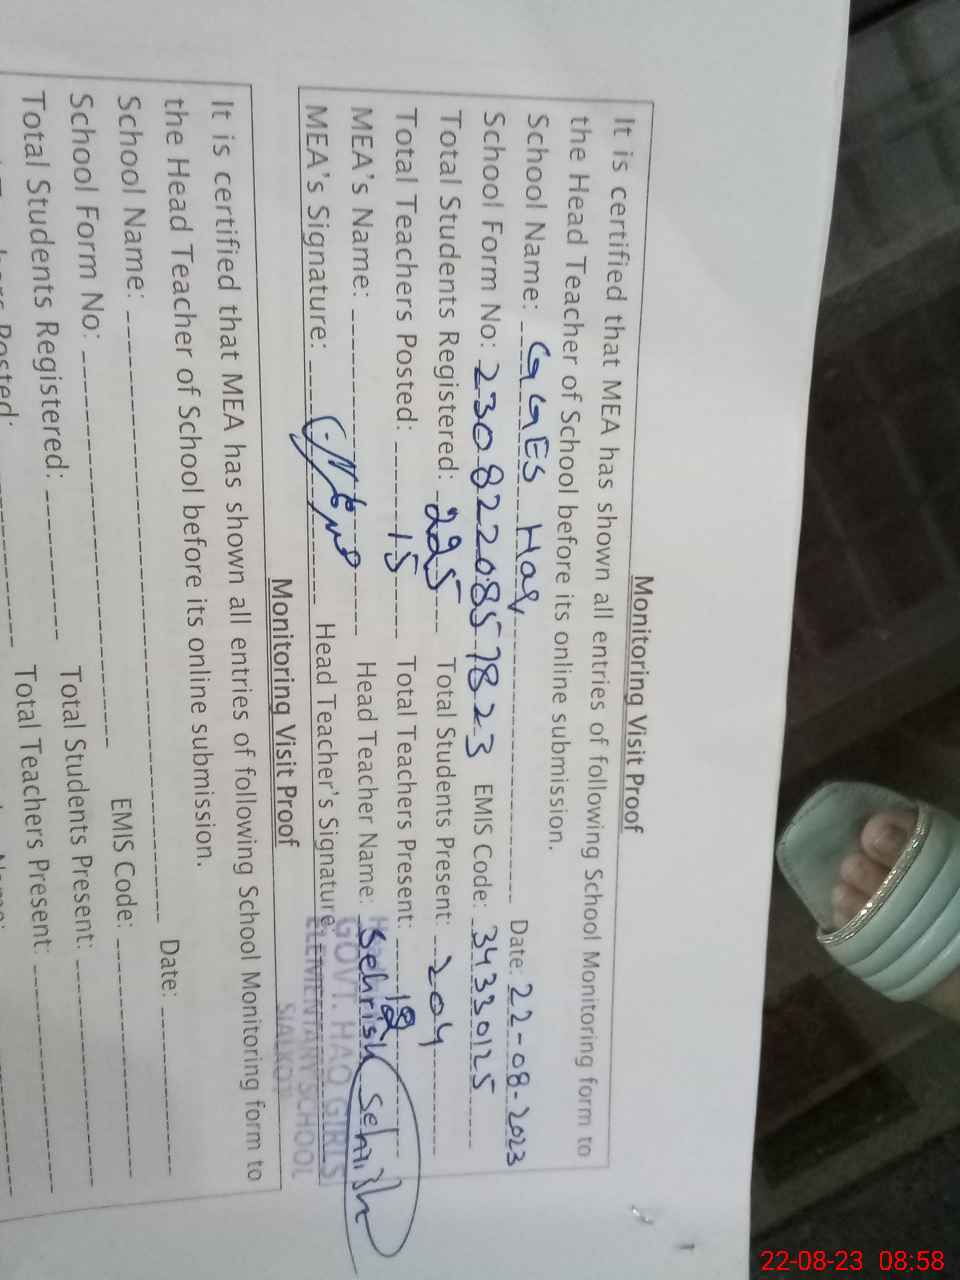 Monitoring Visit Proof
It is certified that MEA has shown all entries of following School Monitoring form to
the Head Teacher of School before its online submission.
School Name: GGES Haq Date: 22-08-2023
School Form No: 23082208578 23 EMIS Code: 34330125
Total Students Registered: 225 Total Students Present: 204
Total Teachers Posted: 15 Total Teachers Present: 12
MEA's Name: Head Teacher Name: Sehrish Sehrish
MEA's Signature: Head Teacher's Signature
GOVT. HAQ GIRLS
ELEMENTARY SCHOOL
SIALKOT
Monitoring Visit Proof
It is certified that MEA has shown all entries of following School Monitoring form to
the Head Teacher of School before its online submission.
School Name: Date:
School Form No: EMIS Code:
Total Students Registered: Total Students Present:
Posted: Total Teachers Present:
22-08-23 08:58